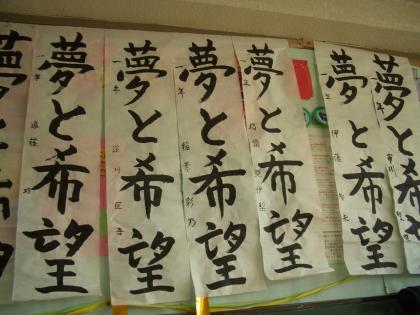 夢と希望
一年
遠藤
夢と希望
一年
夢と希望
一年
稲葉彩乃
夢と希望
一年
夢と希望
一年
伊藤
夢と希望
一年
市川